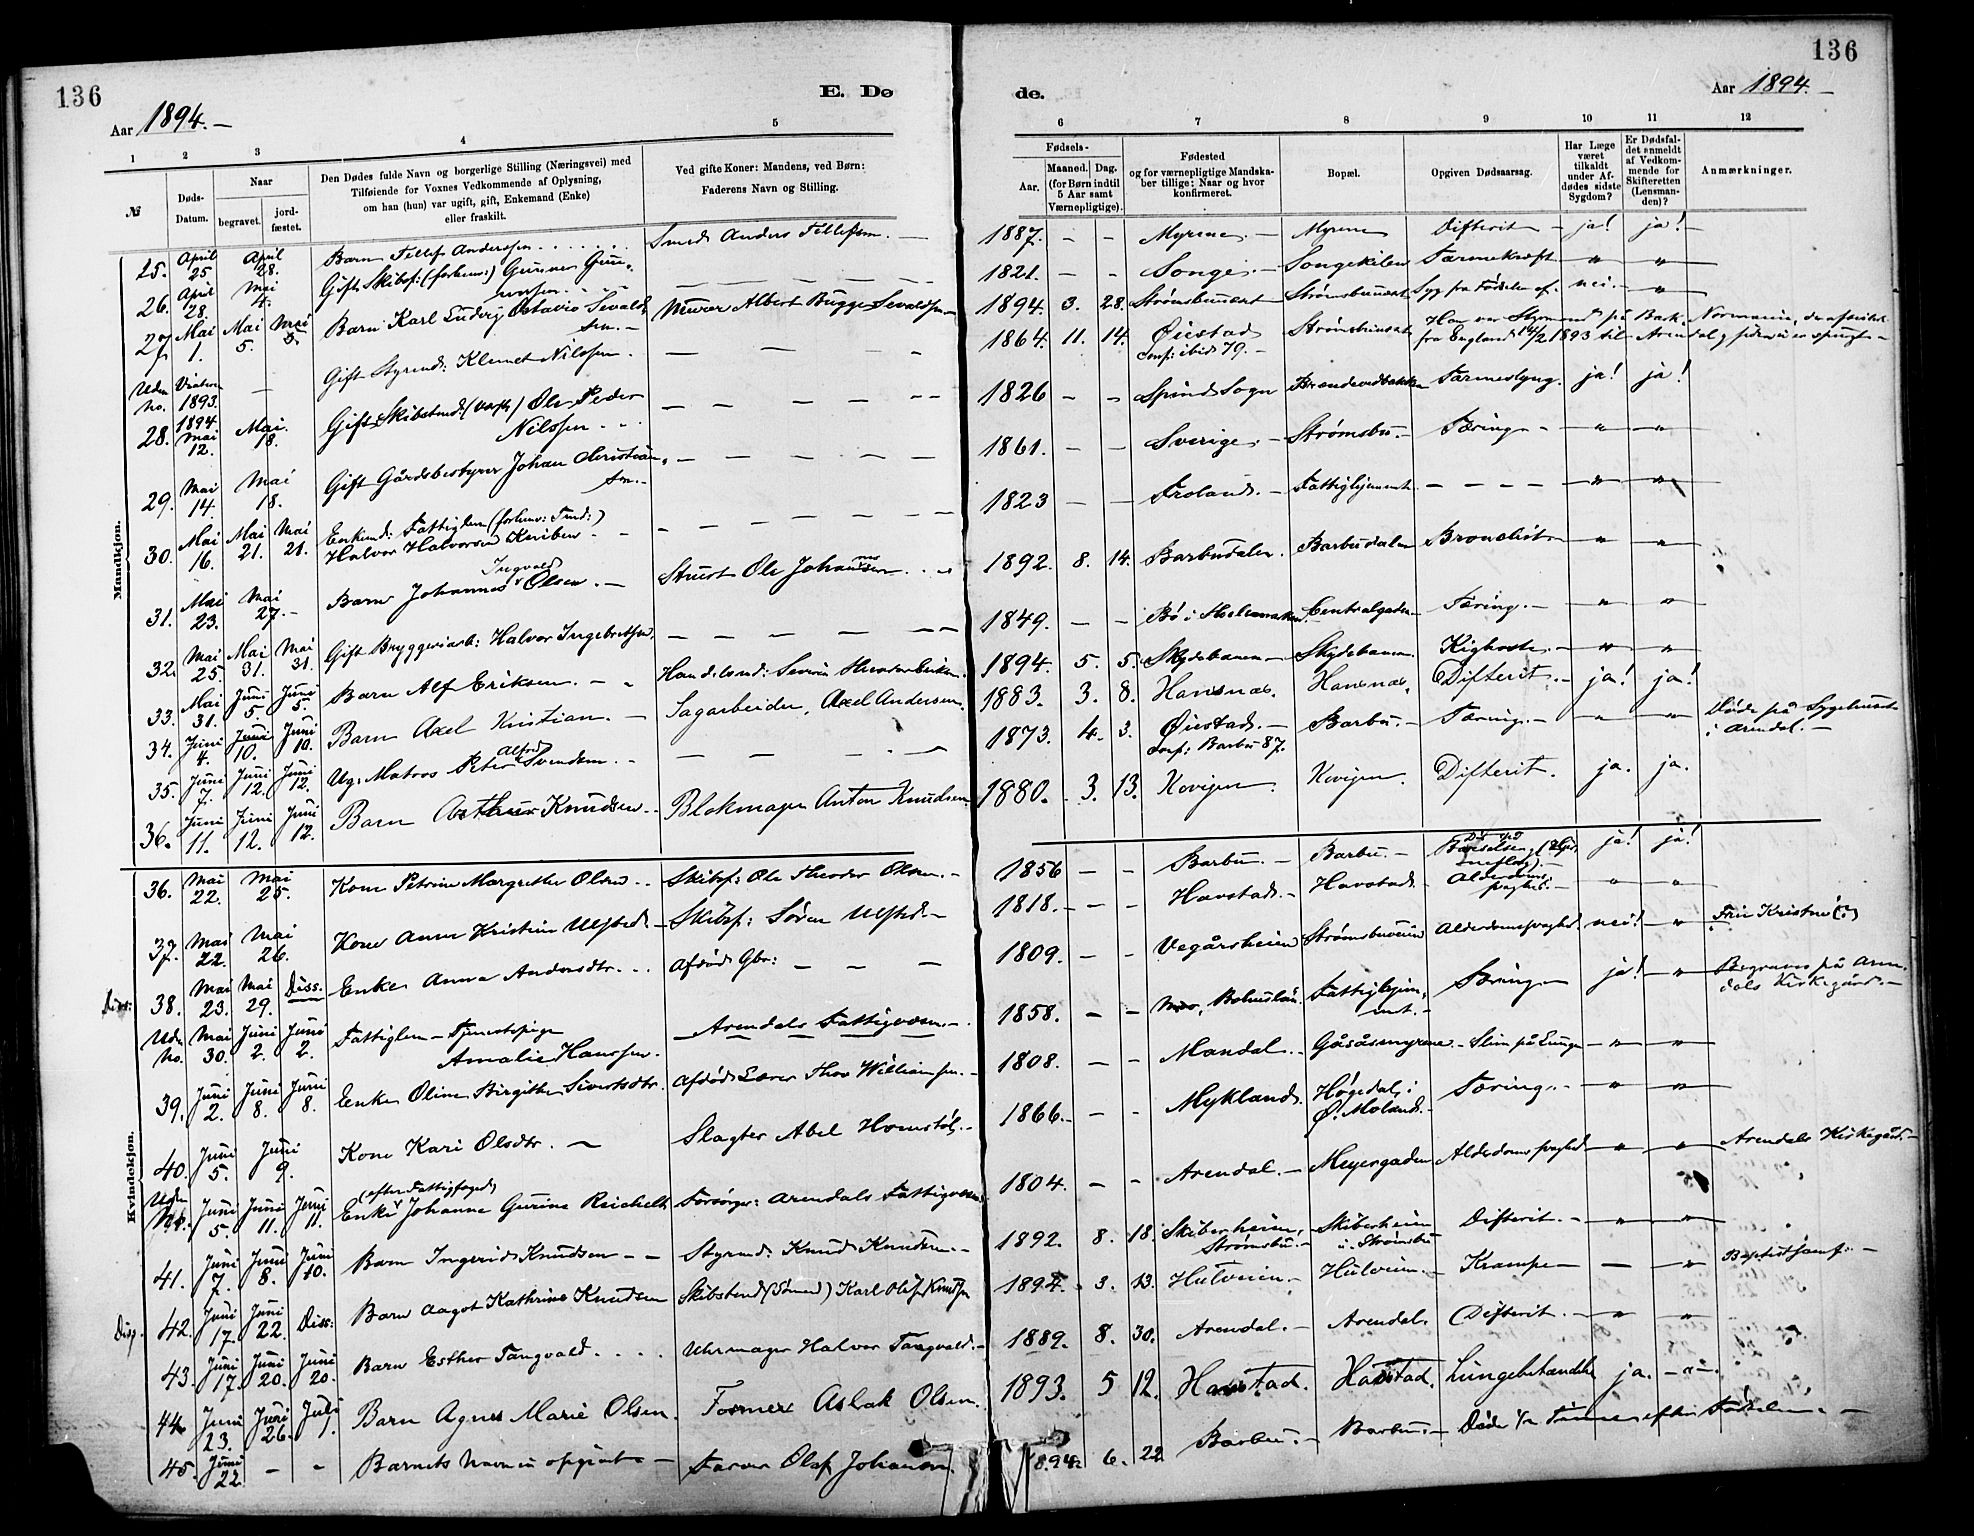 136
136
E. Dø
de.
Aar 1894.
Aar 1894.
1 2 3 4 5
6 7 8 9 10 11 12
№
Døds-Datum.
Naar
begravet.
jord-fæstet.
Den Dødes fulde Navn og borgerlige Stilling (Næringsvei) med
Tilføiende for Voxnes Vedkommende af Oplysning,
om han (hun) var ugift, gift, Enkemand (Enke)
eller fraskilt.
Ved gifte Koner: Mandens, ved Børn:
Faderens Navn og Stilling.
Fødsels-
Aar.
Maaned. Dag.
(for Børn indtil
5 Aar samt
Værnepligtige).
Fødested
og for værnepligtige Mandska-
ber tillige: Naar og hvor
konfirmeret.
Bopæl.
Opgiven Dødsaarsag.
Har Læge
været
tilkaldt
under Af-
dødes sidste
Sygdom?
Er Dødsfal-
det anmeldt
af Vedkom-
mende for
Skifteretten
(Lensman-
den)?
Anmærkninger.
Mandkjøn.
25. April 25 April 28. Barn Tellef Anderssen Smed Anders Tellefsen. 1887. - - Myrene. Myrene Difterit ja! ja!
26. April 28. Mai 4. Gift Skibsf: (forhenv:) Gunner Gun- 1821. - - Songe. Songekilen Tarmekræft " "
27. Mai 1. Mai 5. Mai 5. Barn Karl Ludvig Octavio Sevalds- Murer Albert Bugge Sevaldsen 1894. 3. 28. Strømsbuneset Strømsbuneset Syg fra Fødselen af. nei. "
sen.
Uden No. 1893. - Gift Styrmd: Klemet Nilssen. 1864. 11. 14. Øiestad Strømsbuneset Han var Styrmand på Bark. Normannia, der afseilet
conf: ibid 79. fra England 14/2 1893 til Arendal
28. 1894 Mai 12. Mai 18. Gift Skibstmd. Ole Peder 1826 - - Spind Sogn ja! ja!
Nilssen
29. Mai 14. Mai 18. Gift Gårdsbestyrer Johan Christian- 1861. - - Sverige. Strømsbu. Tæring " "
sen.
30. Mai 16. Mai 21. Mai 21. Enkemd: Fattiglem (forhenv: Tmd:) 1823 - - Froland. - - - - " "
Halvor Halvorsen
31. Mai 23. Mai 27. Barn Johannes Ingvald Olsen. Stuert Ole Johannessen 1892. 8. 14. Barbudalen. Barbudalen Bronchit " "
32. Mai 25. Mai 31. Mai 31. Gift Bryggeriarb: Halvor Ingebretsen. 1849. - - Bø i Thelemarken. Centralgaden Tæring. " "
33. Mai 31. Juni 5 Juni 5. Barn Alf Eriksen. Handelsmd: 1894. 5. 5. Skydebanen Skydebanen. Kighoste. " "
34. Juni 4. Juni 10. Juni 10. Barn Axel Kristian. Sagarbeider, Axel Andersen. 1883. 3. 8. Hansnæs. Hansnæs. Difterit. ja! ja!
35. Juni 7. Juni 12. Juni 12. Ug: Matros Peter Alfred Svendsen. 1873. 4. 3. Øiestad. Barbu. Tæring. " " Døde på Sygehuset
conf: Barbu 87. i Arendal.
36. Juni 11. Juni 12. Juni 12. Barn Arthur Knudsen Blokmager Anton Knudsen 1880. 3. 13. Kovigen. Kovigen. Difterit. ja. ja.
Kvindekjøn.
36. Mai 22. Mai 25. Kone Petrine Margrethe Olsen Skibsf: Ole Theodor Olsen. 1856 - - Barbu. Barbu. ja! ja!
37. Mai 22. Mai 26. Kone Anne Kristine Ulfsted. Skibsf: Søren Ulfsted. 1818. - - Havstad. Havstad. Alderdoms- " "
Diss: 38. Mai 23. Mai 29. Diss. Enke Anna Andersdtr. Afdød Gbr: 1809. - - Vegårsheien Strømsbuveien Alderdomssvaghed. nei! " Frie Kristne (?)
Uden No. Mai 30. Juni 2. Juni 2. Fattiglem - Tjenestepige Arendals Fattigvæsen. 1858. - - Bohuslän. Fattighjem- Tæring ja! " Begraves på Aren-
Amalie Hanssen. met. dals Kirkegård.
39. Juni 2. Juni 8. Juni 8. Enke Oline Birgithe Sivertsdtr. Afdød Lærer Thor Williamsen. 1808. - - Mandal. Gåsåsmyrene. Slim på Lunge " "
40. Juni 5. Juni 9. Kone Kari Olsdtr. Slagter Abel Homstøl. 1866. - - Mykland. Høgedal i Tæring. " "
Ø. Moland.
Uden No. Juni 5. Juni 11. Juni 11. (efter Fattigfoged) Arendal. Meyergaden Alderdomssvaghed " " Arendals Kirkegård.
Enke Johanne Gurine Reichelt Forsørges: Arendals Fattigvæsen. 1804. - -
41. Juni 7. Juni 8. Juni 10. Barn Ingerid Knudsen Styrmd: Knud Knudsen. 1892. 8. 18. Skiberheien, Skiberheien Difterit. " "
Strømsbu. Strømsbu
Diss. 42. Juni 17. Juni 22. Diss: Barn Aagot Kathrine Knudsen Skibstmd (Sømand) Karl Olaf Knudsen 1894. 3. 13. Hulveien. Hulveien. Krampe - " Baptistsamf:
43. Juni 17. Juni 20. Juni 20. Barn Esther Tangvald. Uhrmager Halvor Tangvald. 1889. 8. 30. Arendal. Arendal. Difterit. " "
44 Juni 23. Juni 26. Juli 1. Barn Agnes Marie Olsen. Former Aslak Olsen. 1893. 5 12. Havstad. Havstad. Lungebetændelse ja. "
45. Juni 22. - - Barnets Navn ei opgivet Farver Olaf Johansen. 1894. 6. 22. Barbu. Barbu. Døde 1/2 Time efter Fødselen.